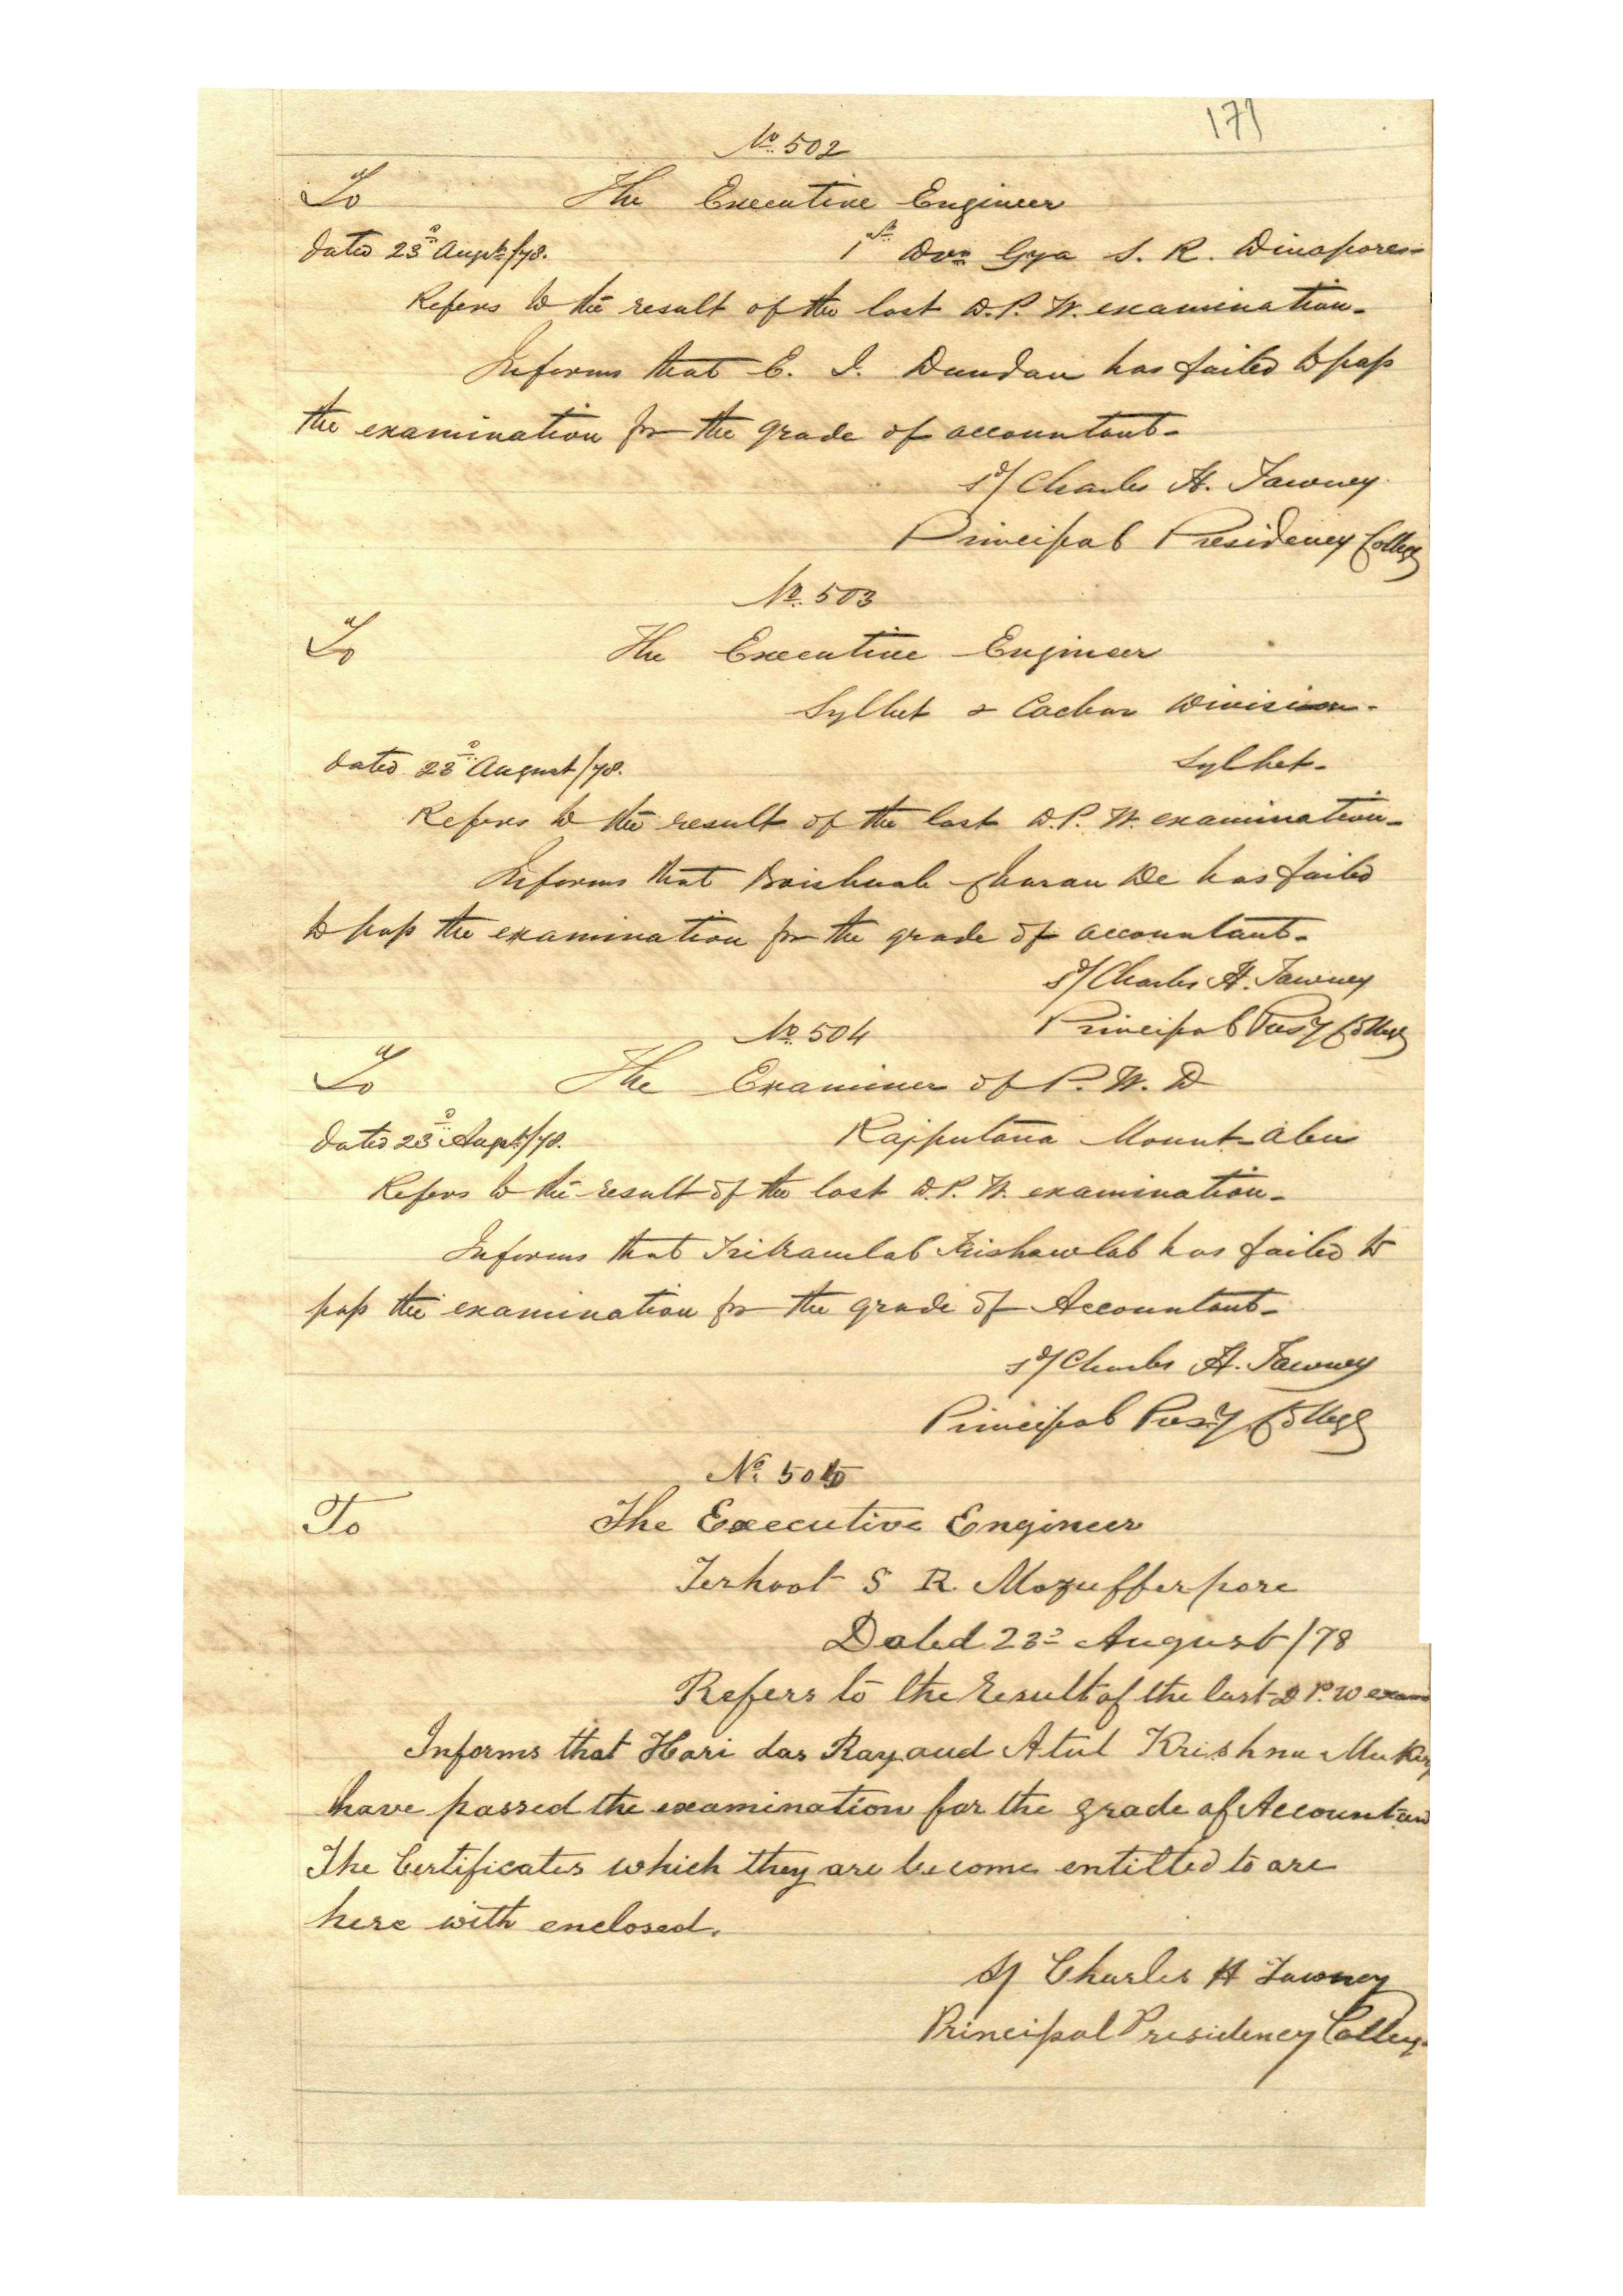 171
No. 502
To The Executive Engineer
Dated 23d Augst/78. 1st Dvn Gya S. R. Dinapore-
Refers to the result of the last D. P. W. examination-
Informs that C. J. Dundan has failed to pass
the examination for the grade of accountant-
Sd/ Charles H. Tawney
Principal Presidency College
No. 503
To The Executive Engineer
Sylhet & Cachar Division-
Dated 23d August/78. Sylhet-
Refers to the result of the last D. P. W. examination-
Informs that Charan De has failed
to pass the examination for the grade of accountant-
Sd/ Charles H. Tawney
No. 504 Principal Presy College
To The Examiner of P. W. D
Dated 23d Augst/78. Rajputana Mount-Abu
Refers to the result of the last D. P. W. examination-
Informs that has failed to
pass the examination for the grade of Accountant-
Sd/ Charles H. Tawney
Principal Presy College
No. 505
To The Executive Engineer
Terhoot S R. Mozufferpore
Dated 23d August/78
Refers to the result of the last D P. W exam
Informs that Hari das Ray and Atul Krishna
have passed the examination for the grade of Accountan
The Certificates which they are become entitled to are
here with enclosed.
Sd/ Charles H Tawney
Principal Presidency College